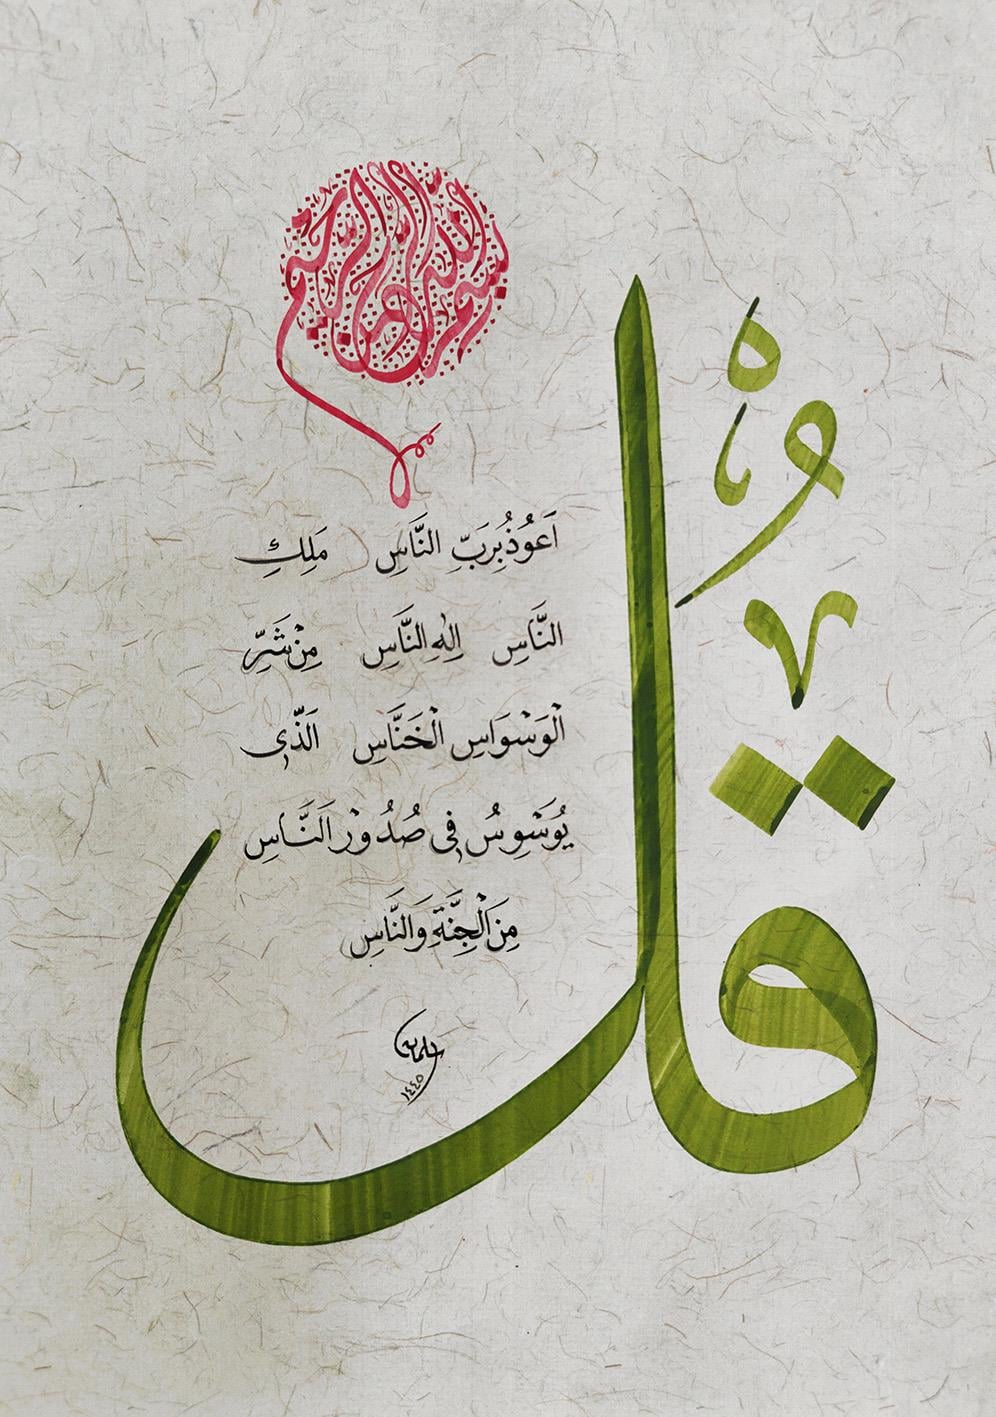 بسم الله الرحمن الرحيم
قُل
اَعُوْذُ بِرَبِّ النَّاسِ مَلِكِ
النَّاسِ اِلٰهِ النَّاسِ مِنْ شَرِّ
الْوَسْوَاسِ الْخَنَّاسِ اَلَّذٖى
يُوَسْوِسُ فٖى صُدُوْرِ النَّاسِ
مِنَ الْجِنَّةِ وَالنَّاسِ
١٤٤٥